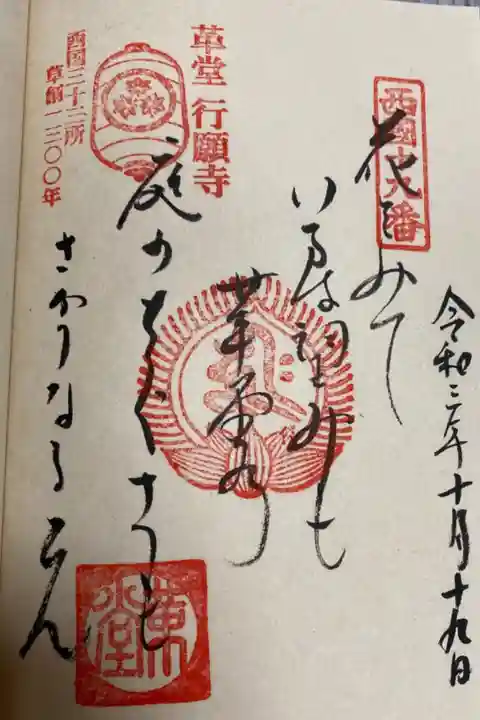 西國十九番
令和 年十月十九日
花をみて
いまは望みも
革堂の
庭のちくさも
さかりなるらん
革堂 行願寺
西国三十三所
草創一三〇〇年
革堂